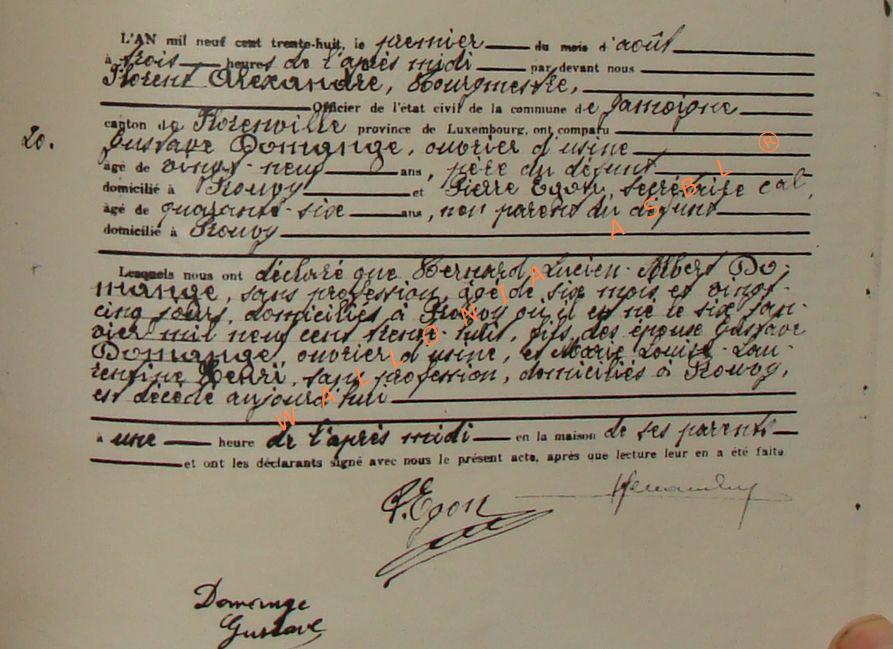 L'AN mil neuf cent trente-huit, le premier du mois d'août
à trois heures de l'après midi par devant nous
Florent Alexandre, Bourgmestre,
Officier de l'état civil de la commune de Jamoigne
canton de Florenville province de Luxembourg, ont comparu
20.
Gustave Domange, ouvrier d'usine
âgé de vingt-neuf ans, père du défunt
domicilié à Prouvy et Pierre Egon, secrétaire cal,
âgé de quarante-six ans, non parent du défunt
domicilié à Prouvy
Lesquels nous ont déclaré que Bernard Lucien Albert Do-
mange, sans profession, âgé de six mois et vingt-
cinq jours, domicilié à Prouvy où il est né le six jan-
vier mil neuf cent trente-huit, fils des épouse Gustave
Domange, ouvrier d'usine, et Marie Louise Lau-
rentine Henri, sans profession, domiciliés à Prouvy,
est décédé aujourd'hui
à une heure de l'après midi en la maison de ses parents
et ont les déclarants signé avec nous le présent acte, après que lecture leur en a été faite
P. Egon
Domange
Gustave
WALLONIA ASBL ®